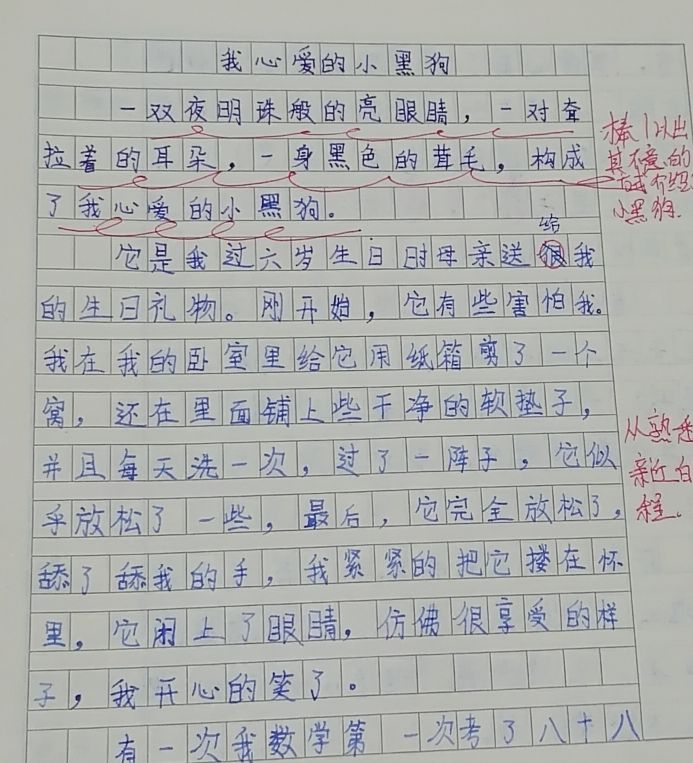 我心爱的小黑狗
一双夜明珠般的亮眼睛，一对耷
拉着的耳朵，一身黑色的茸毛，构成
了我心爱的小黑狗。
给
它是我过六岁生日时母亲送我
的生日礼物。刚开始，它有些害怕我。
我在我的卧室里给它用纸箱剪了一个
窝，还在里面铺上些干净的软垫子，
并且每天洗一次，过了一阵子，它似
乎放松了一些，最后，它完全放松了，
舔了舔我的手，我紧紧的把它搂在怀
里，它闭上了眼睛，仿佛很享受的样
子，我开心的笑了。
有一次我数学第一次考了八十八
棒！以出
其不意的
介绍
小黑狗.
从熟悉
程.